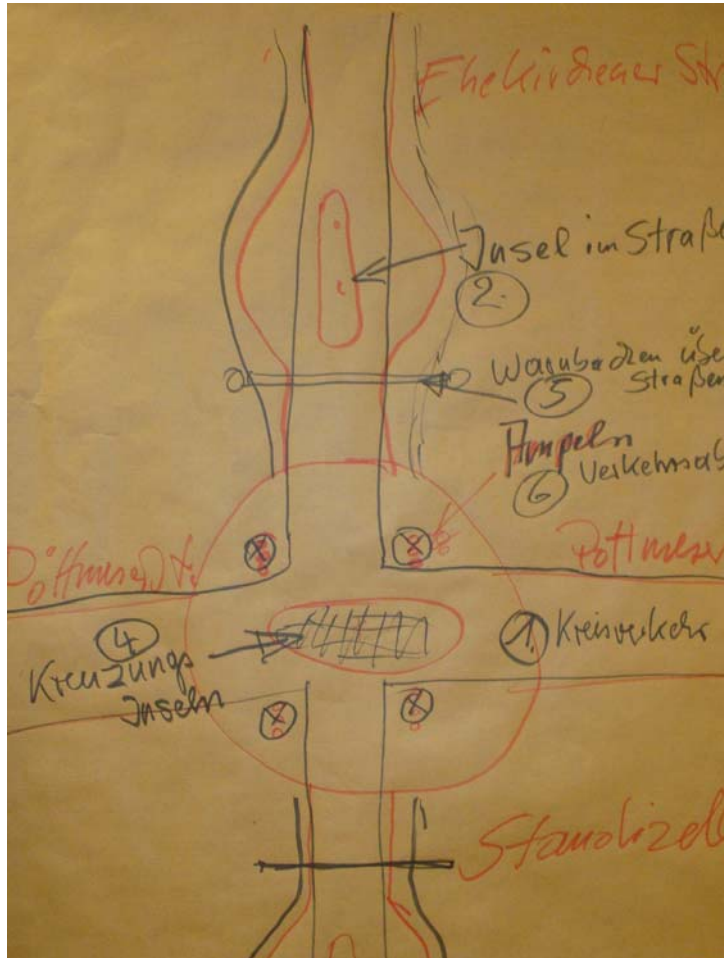 Ehekirchener Str
Insel im Straße
2.
Warnbacken übe
Straßen
5
Ampeln
6 Verkehrsab
Pöttmeser Str.
Pöttmeser
4
Kreuzungs
Inseln
1. Kreisverkehr
Standizell